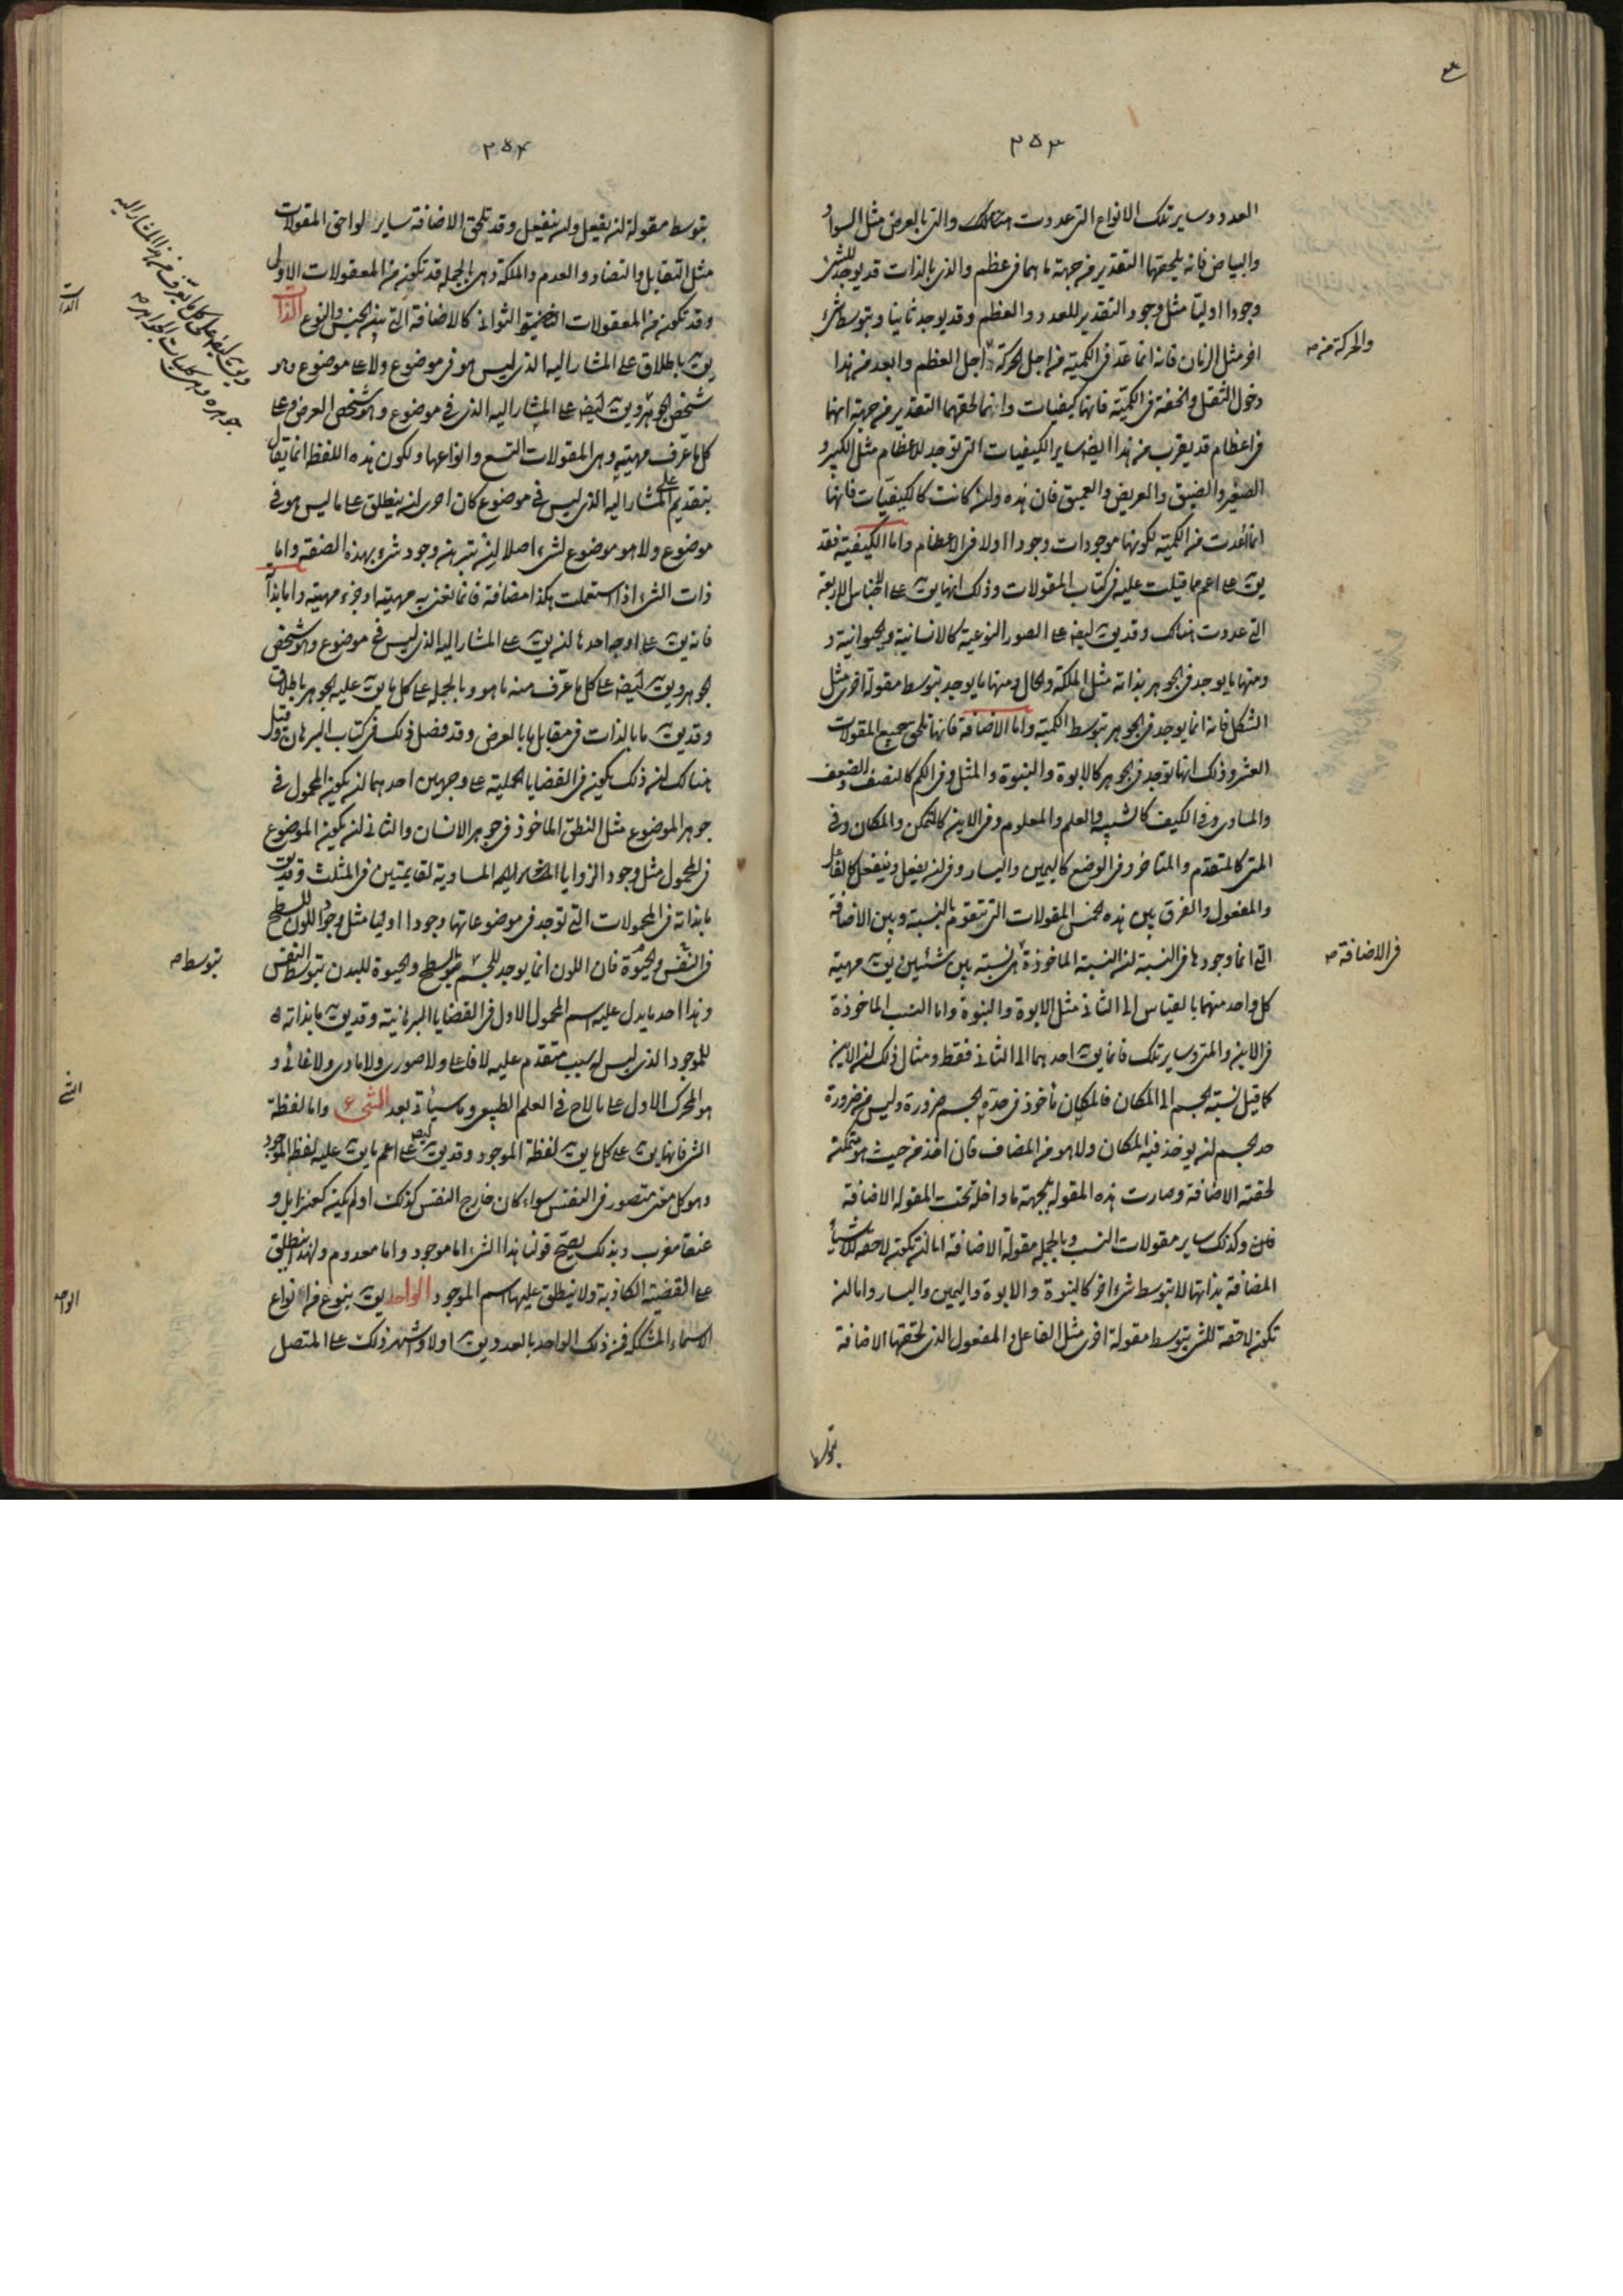 ٢٥٣
العدد وساير تلك الانواع التى عددت هنالك والتى بالعرض مثل السواد
والبياض فانه يلحقهما التقدير من جهة ما هما فى عظم والذى بالذات قد يوجد للشئ
وجودا اوليا مثل وجود التقدير للعدد والعظم وقد يوجد ثانيا وبتوسط شئ
اخر مثل الزمان فانه انما عد فى الكمية من اجل الحركة اجل العظم وابعد من هذا
والحركة من ص
دخول الثقل والخفة فى الكمية فانها كيفيات وانما لحقهما التقدير من جهة انها
فى اعظام قد يقرب من هذا ايضا ساير الكيفيات التى توجد للاعظام مثل الكبير و
الصغير والضيق والعريض والعميق فان هذه وان كانت كالكيفيات فانها
انما عدت من الكمية لكونها موجودات وجودا اولا فى الاعظام واما الكيفية فقد
يق على اعم مما قيلت عليه فى كتاب المقولات وذلك انها يق على الاجناس الاربعة
التى عددت هنالك وقد يق ايضا على الصور النوعية كالانسانية والحيوانية و
ومنها ما يوجد فى الجوهر بذاته مثل الملكة والحال ومنها ما يوجد بتوسط مقولة اخرى مثل
الشكل فانه انما يوجد فى الجوهر بتوسط الكمية واما الاضافة فانها تلحق جميع المقولات
العشر وذلك انها توجد فى الجوهر كالابوة والبنوة والمثل وفى الكم كالنصف والضعف
والمساوى وفى الكيف كالشبيه والعلم والمعلوم وفى الاين كالمتمكن والمكان وفى
المتى كالمتقدم والمتاخر وفى الوضع كاليمين واليسار وفى ان يفعل وينفعل كالفاعل
والمفعول والفرق بين هذه الخمس المقولات التى تتقوم بالنسبة وبين الاضافة
التى انما وجودها فى النسبة ان النسبة الماخوذة هى نسبة بين شيئين يق مهية
فى الاضافة ص
كل واحد منهما بالقياس الى الثانى مثل الابوة والبنوة واما النسب الماخوذة
فى الاين والمتى وساير تلك فانما يق احدهما الى الثانى فقط ومثال ذلك ان الاين
كما قيل نسبة الجسم الى المكان فالمكان ماخوذ فى حده الجسم ضرورة وليس من ضرورة
حد الجسم ان يوخذ فيه المكان ولا هو من المضاف فان اخذ من حيث هو متمكن
لحقته الاضافة وصارت هذه المقولة بجهة ما داخلة تحت المقولة الاضافة
وكذلك ساير مقولات النسب وبالجملة مقولة الاضافة اما ان تكون لاحقة للاشياء
المضافة بذاتها لا بتوسط شئ اخر كالبنوة والابوة واليمين واليسار واما ان
تكون لاحقة للشئ بتوسط مقولة اخرى مثل الفاعل والمفعول الذى لحقتها الاضافة
٢٥٤
بتوسط مقولة ان يفعل وان ينفعل وقد تلحق الاضافة ساير لواحق المقولات
مثل التقابل والتضاد والعدم والملكة وهى بالجملة قد تكون من المعقولات الاول
وقد تكون من المعقولات الثوانى كالاضافة التى بين الجنس والنوع الذات
الذات
يق باطلاق على المشار اليه الذى ليس هو فى موضوع ولا على موضوع وهو
شخص الجوهر ويق ايضا على المشار اليه الذى فى موضوع وهو شخص العرض وعلى
كل ما عرف مهيته وهى المقولات التسع وانواعها ولكون هذه اللفظة انما يقال
بتقديم على المشار اليه الذى ليس فى موضوع كان احرى ان ينطلق على ما ليس هو فى
موضوع ولا هو موضوع لشئ اصلا ان تبرهن وجود شئ بهذه الصفة واما
ذات الشئ اذا استعملت هكذا مضافة فانما يعنى به مهيته او جزء مهيته واما بذاته
فانه يق على اوجه احدها ان يق على المشار اليه الذى ليس فى موضوع وهو شخص
الجوهر ويق ايضا على كل ما عرف منه ما هو وبالجملة على كل ما يق عليه الجوهر باطلاق
وقد يق ما بالذات فى مقابل ما بالعرض وقد فصل ذلك فى كتاب البرهان وقيل
هنالك ان ذلك يكون فى القضايا الحملية على وجهين احدهما ان يكون المحمول فى
جوهر الموضوع مثل النطق الماخوذ فى جوهر الانسان والثانى ان يكون الموضوع
فى المحمول مثل وجود الزوايا المساوية لقايمتين فى المثلث وقد يق
ما بذاته فى المحمولات التى توجد فى موضوعاتها وجودا اوليا مثل وجود اللون للسطح
فى النفس والحيوة فان اللون انما يوجد للجسم بتوسط السطح والحيوة للبدن بتوسط النفس
بتوسط ص
وهذا احد ما يدل عليه اسم المحمول الاول فى القضايا البرهانية وقد يق ما بذاته
للموجود الذى ليس له سبب متقدم عليه لا فاعلى ولا صورى ولا مادى ولا غائى و
هو المحرك الاول على ما لاح فى العلم الطبيعى وما سيأتى بعد الشئ واما لفظة
الشئ
الشئ فانها يق على كل ما يق لفظة الموجود وقد يق ايضا على اعم ما يق عليه لفظ الموجود
وهو كل معنى متصور فى النفس سواء كان خارج النفس كذلك او لم يكن كعنز ايل و
عنقا مغرب وبذلك يصح قولنا هذا الشئ اما موجود واما معدوم ولهذا ينطلق
على القضية الكاذبة ولا ينطلق عليها اسم الموجود الواحد يق بنوع من انواع
الواحد
الاسماء المشككة فمن ذلك الواحد بالعدد ويق اولا واشهر ذلك على المتصل